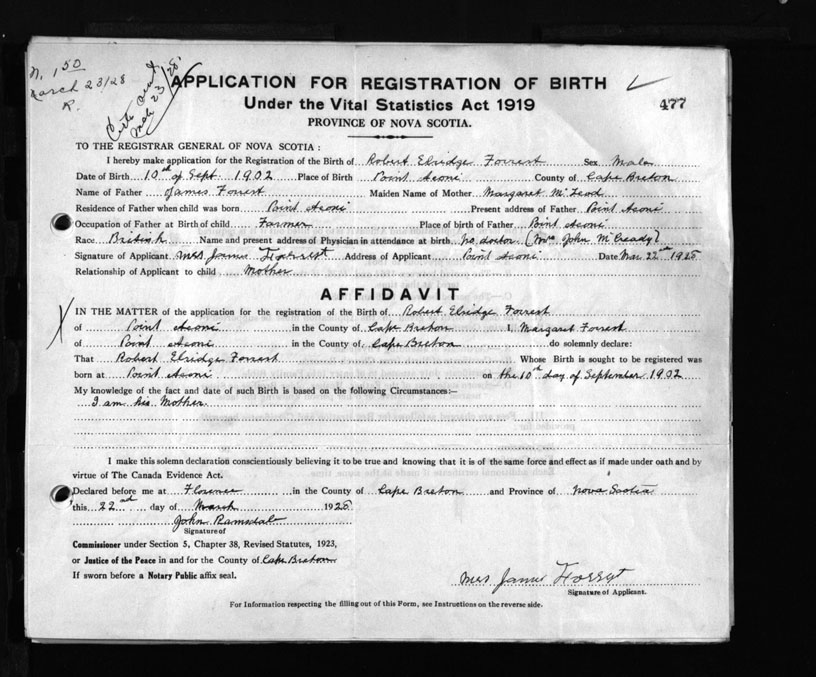 N. 150
March 23/28
R.
Certe Sent
Mch 23/28.
APPLICATION FOR REGISTRATION OF BIRTH
Under the Vital Statistics Act 1919
477
PROVINCE OF NOVA SCOTIA.
TO THE REGISTRAR GENERAL OF NOVA SCOTIA :
I hereby make application for the Registration of the Birth of Robert Elridge Forrest Sex Male
Date of Birth 10th of Sept. 1902 Place of Birth Point Aconi County of Cape Breton
Name of Father James Forrest Maiden Name of Mother Margaret McLeod
Residence of Father when child was born Point Aconi Present address of Father Point Aconi
Occupation of Father at Birth of child Farmer Place of birth of Father Point Aconi
Race British Name and present address of Physician in attendance at birth no doctor (Mrs John McCready)
Signature of Applicant Mrs James Forrest Address of Applicant Point Aconi Date Mar. 22nd 1928
Relationship of Applicant to child Mother
AFFIDAVIT
IN THE MATTER of the application for the registration of the Birth of Robert Elridge Forrest
of Point Aconi in the County of Cape Breton I, Margaret Forrest
of Point Aconi in the County of Cape Breton do solemnly declare:
That Robert Elridge Forrest Whose Birth is sought to be registered was
born at Point Aconi on the 10th day of September 1902
My knowledge of the fact and date of such Birth is based on the following Circumstances:—
I am his Mother
I make this solemn declaration conscientiously believing it to be true and knowing that it is of the same force and effect as if made under oath and by
virtue of The Canada Evidence Act.
Declared before me at Florence in the County of Cape Breton and Province of Nova Scotia
this 22nd day of March 1928
John Ramsdale
Signature of
Commissioner under Section 5, Chapter 38, Revised Statutes, 1923,
or Justice of the Peace in and for the County of Cape Breton
If sworn before a Notary Public affix seal.
Mrs James Forrest
Signature of Applicant.
For Information respecting the filling out of this Form, see Instructions on the reverse side.